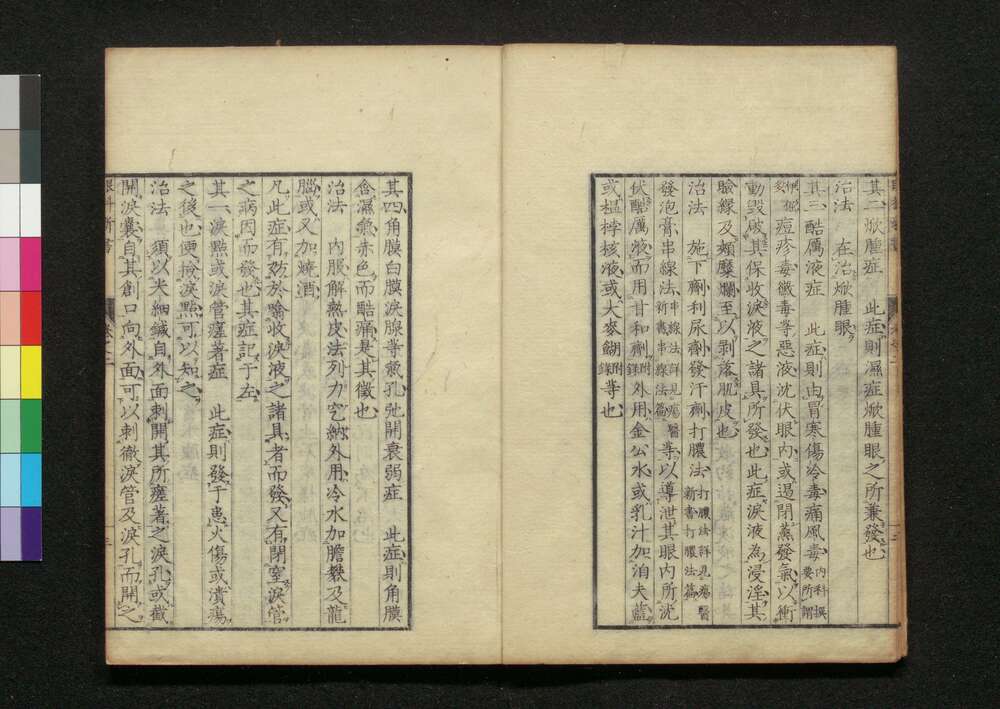 其二、焮腫症　此症則濕症焮腫眼之所兼發也
治法　在治焮腫眼
其三、酷厲液症　此症則由冒寒傷冷毒痛風毒內科撰要所謂
痘疹毒黴毒等惡液沈伏眼內或遏閉蒸發氣以衝
動毀破其保收淚液之諸具所發也此症淚液為浸淫其
瞼緣及頰糜爛至以剝落肌皮也
治法　施下劑利尿劑發汗劑打膿法打膿法詳見瘍醫新書打膿法篇
發泡膏串線法串線法詳見瘍醫新書串線法篇等以導泄其眼內所沈
伏酷厲液而用甘和劑附錄外用金公水或乳汁加洎夫藍
或榲桲核液或大麥餬附錄等也
其四、角膜白膜淚腺等氣孔弛開衰弱症　此症則角膜
含濕氣赤色而酷痛是其徵也
治法　內服解熱皮法列力空納外用冷水加膽礬及龍
腦或又加燒酒
凡此症有妨於噏收淚液之諸具者而發又有閉窒淚管
之病因而發也其症記于左
其一、淚點或淚管㾴著症　此症則發于患火傷或潰瘍
之後也便撿淚點可以知之
治法　須以尖細鍼自外面刺開其所㾴著之淚孔或截
開淚囊自其創口向外面可以刺徹淚管及淚孔而開之
眼科新書